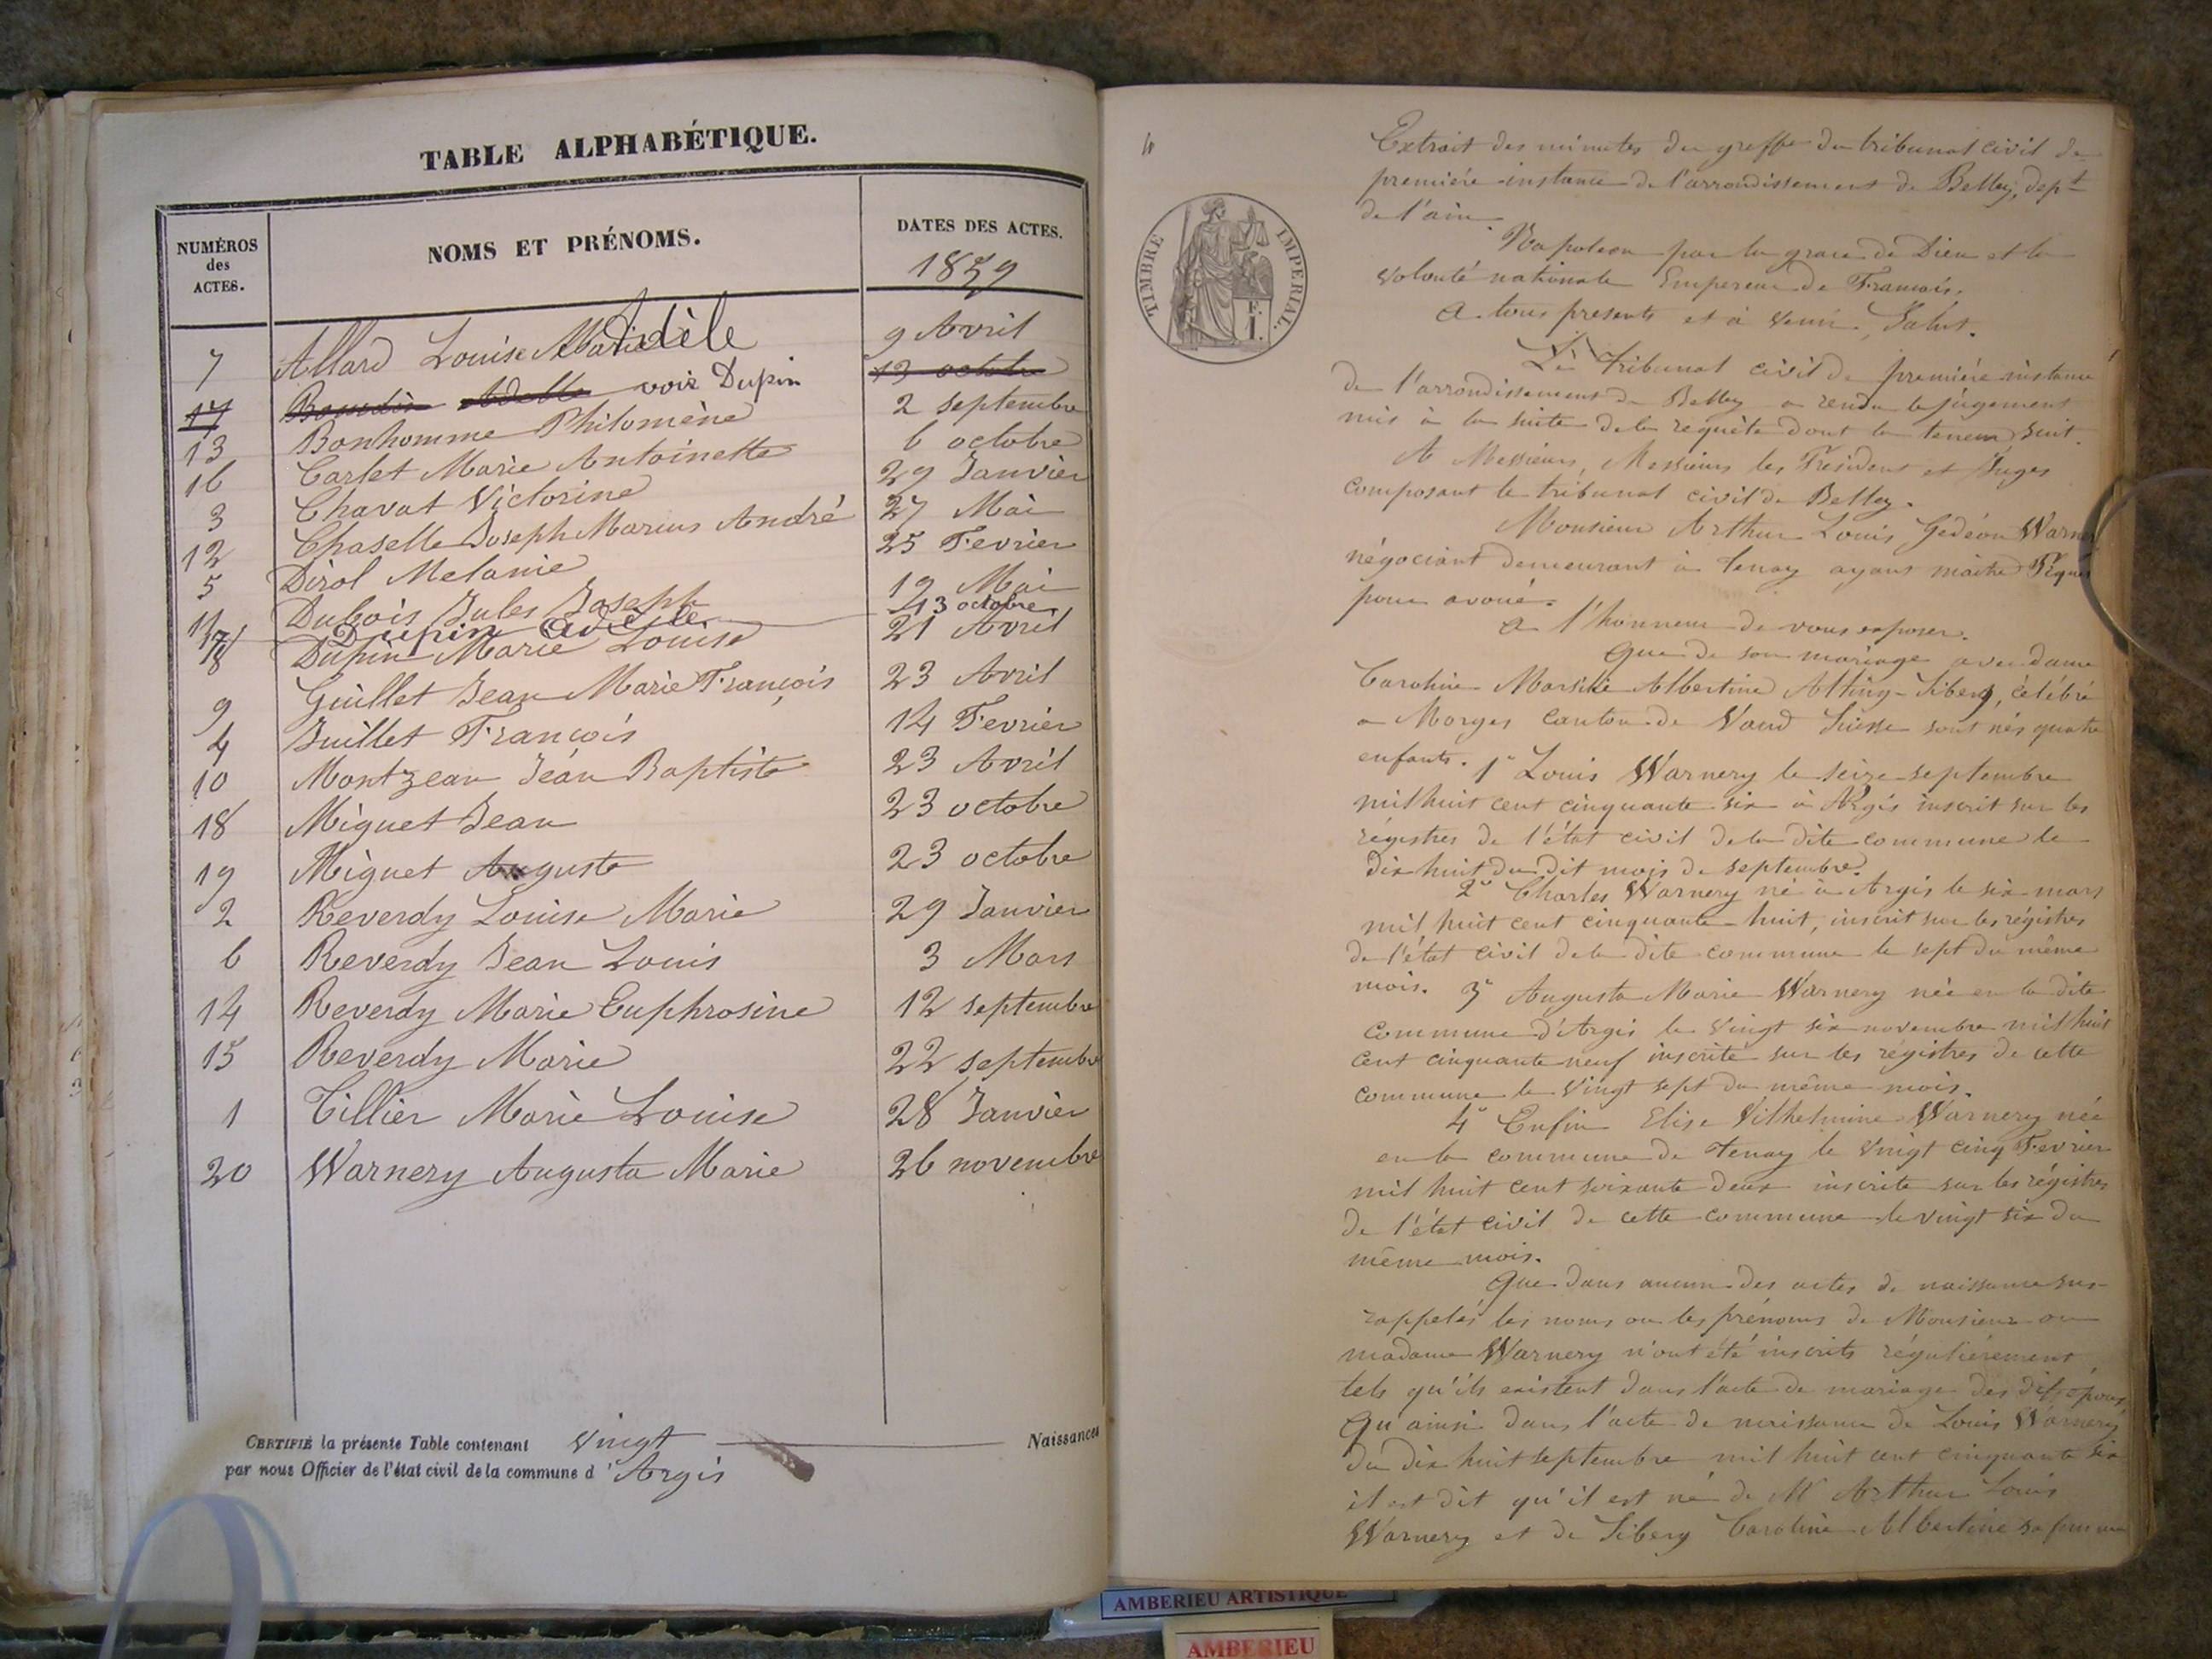 TABLE ALPHABÉTIQUE.
NUMÉROS des ACTES.
NOMS ET PRÉNOMS.
DATES DES ACTES.
1859
7 Allard Louise Marie Adèle 9 Avril
17 Adelle voir Dupin 13 octobre
13 Bonhomme Philomène 2 septembre
16 Carlet Marie Antoinette 6 octobre
3 Chavat Victorine 29 Janvier
12 Chaselle Joseph Marius André 27 Mai
5 Dirol Melanie 25 Fevrier
11 Dubois Jules Joseph 12 Mai
17 Dupin Adèle 13 octobre
8 Dupin Marie Louise 21 Avril
9 Guillet Jean Marie François 23 Avril
4 Juillet François 14 Fevrier
10 Montzean Jean Baptiste 23 Avril
18 Miguet Jean 23 octobre
19 Miguet Auguste 23 octobre
2 Reverdy Louise Marie 29 Janvier
6 Reverdy Jean Louis 3 Mars
14 Reverdy Marie Euphrosine 12 septembre
15 Reverdy Marie 22 septembre
1 Tillier Marie Louise 28 Janvier
20 Warnery Augusta Marie 26 novembre
CERTIFIÉ la présente Table contenant vingt Naissances
par nous Officier de l'état civil de la commune d'Argis
TIMBRE IMPERIAL.
E. I.
Extrait des minutes du greffe du tribunal civil de
première instance de l'arrondissement de Belley, dept
de l'ain.
Napoleon par la grace de Dieu et la
volonté nationale Empereur de Francais.
a tous presents et à venir, Salut.
Le Tribunal civil de première instance
de l'arrondissement de Belley a rendu le jugement
mis à la suite de la requète dont la teneur suit.
A Messieurs, Messieurs les President et Juges
composant le tribunal civil de Belley.
Monsieur Arthur Louis Gedéon Warne
négociant demeurant à Tenay ayant maitre
pour avoué.
a l'honneur de vous exposer.
que de son mariage avec dame
Caroline Albertine Sibery, célébré
a Morges canton de Vaud Suisse sont nés quatre
enfants. 1° Louis Warnery le seize septembre
mil huit cent cinquante six à Argis inscrit sur les
régistres de l'état civil de la dite commune le
dix huit du dit mois de septembre.
2° Charles Warnery né à Argis le six mars
mil huit cent cinquante-huit, inscrit sur les régistres
de l'état civil de la dite commune le sept du même
mois. 3° Augusta Marie Warnery née en la dite
commune d'Argis le vingt six novembre mil huit
cent cinquante neuf inscrite sur les régistres de cette
commune le vingt sept du même mois.
4° Enfin Elise Vilhelmine Warnery née
en la commune de Tenay le vingt cinq Fevrier
mil huit cent soixante deux inscrite sur les régistres
de l'état civil de cette commune le vingt six du
même mois.
Que dans aucun des actes de naissance sus-
rappelés les noms ou les prénoms de Monsieur ou
madame Warnery n'ont été inscrits régulièrement
tels qu'ils existent dans l'acte de mariage des dits époux,
Qu'ainsi dans l'acte de naissance de Louis Warnery
du dix huit septembre mil huit cent cinquante six
il est dit qu'il est né de Mr Arthur Louis
Warnery et de Sibery Caroline Albertine sa femme
AMBERIEU ARTISTIQUE
AMBERIEU